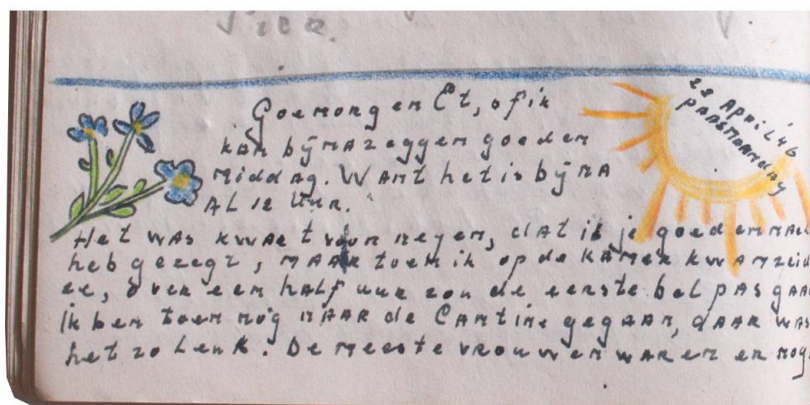 Goemorgen Et, of ik
kan bijna zeggen goeden
middag. Want het is bijna
al 12 uur.
22 April '46
Paasmaandag
Het was kwart voor negen, dat ik je goedennacht
heb gezegt, maar toen ik op de kamer kwam zeid
ee, over een half uur zou de eerste bel pas gaan
ik ben toen nog naar de Cantine gegaan, daar was
het zo leuk. De meeste vrouwen waren er nog.